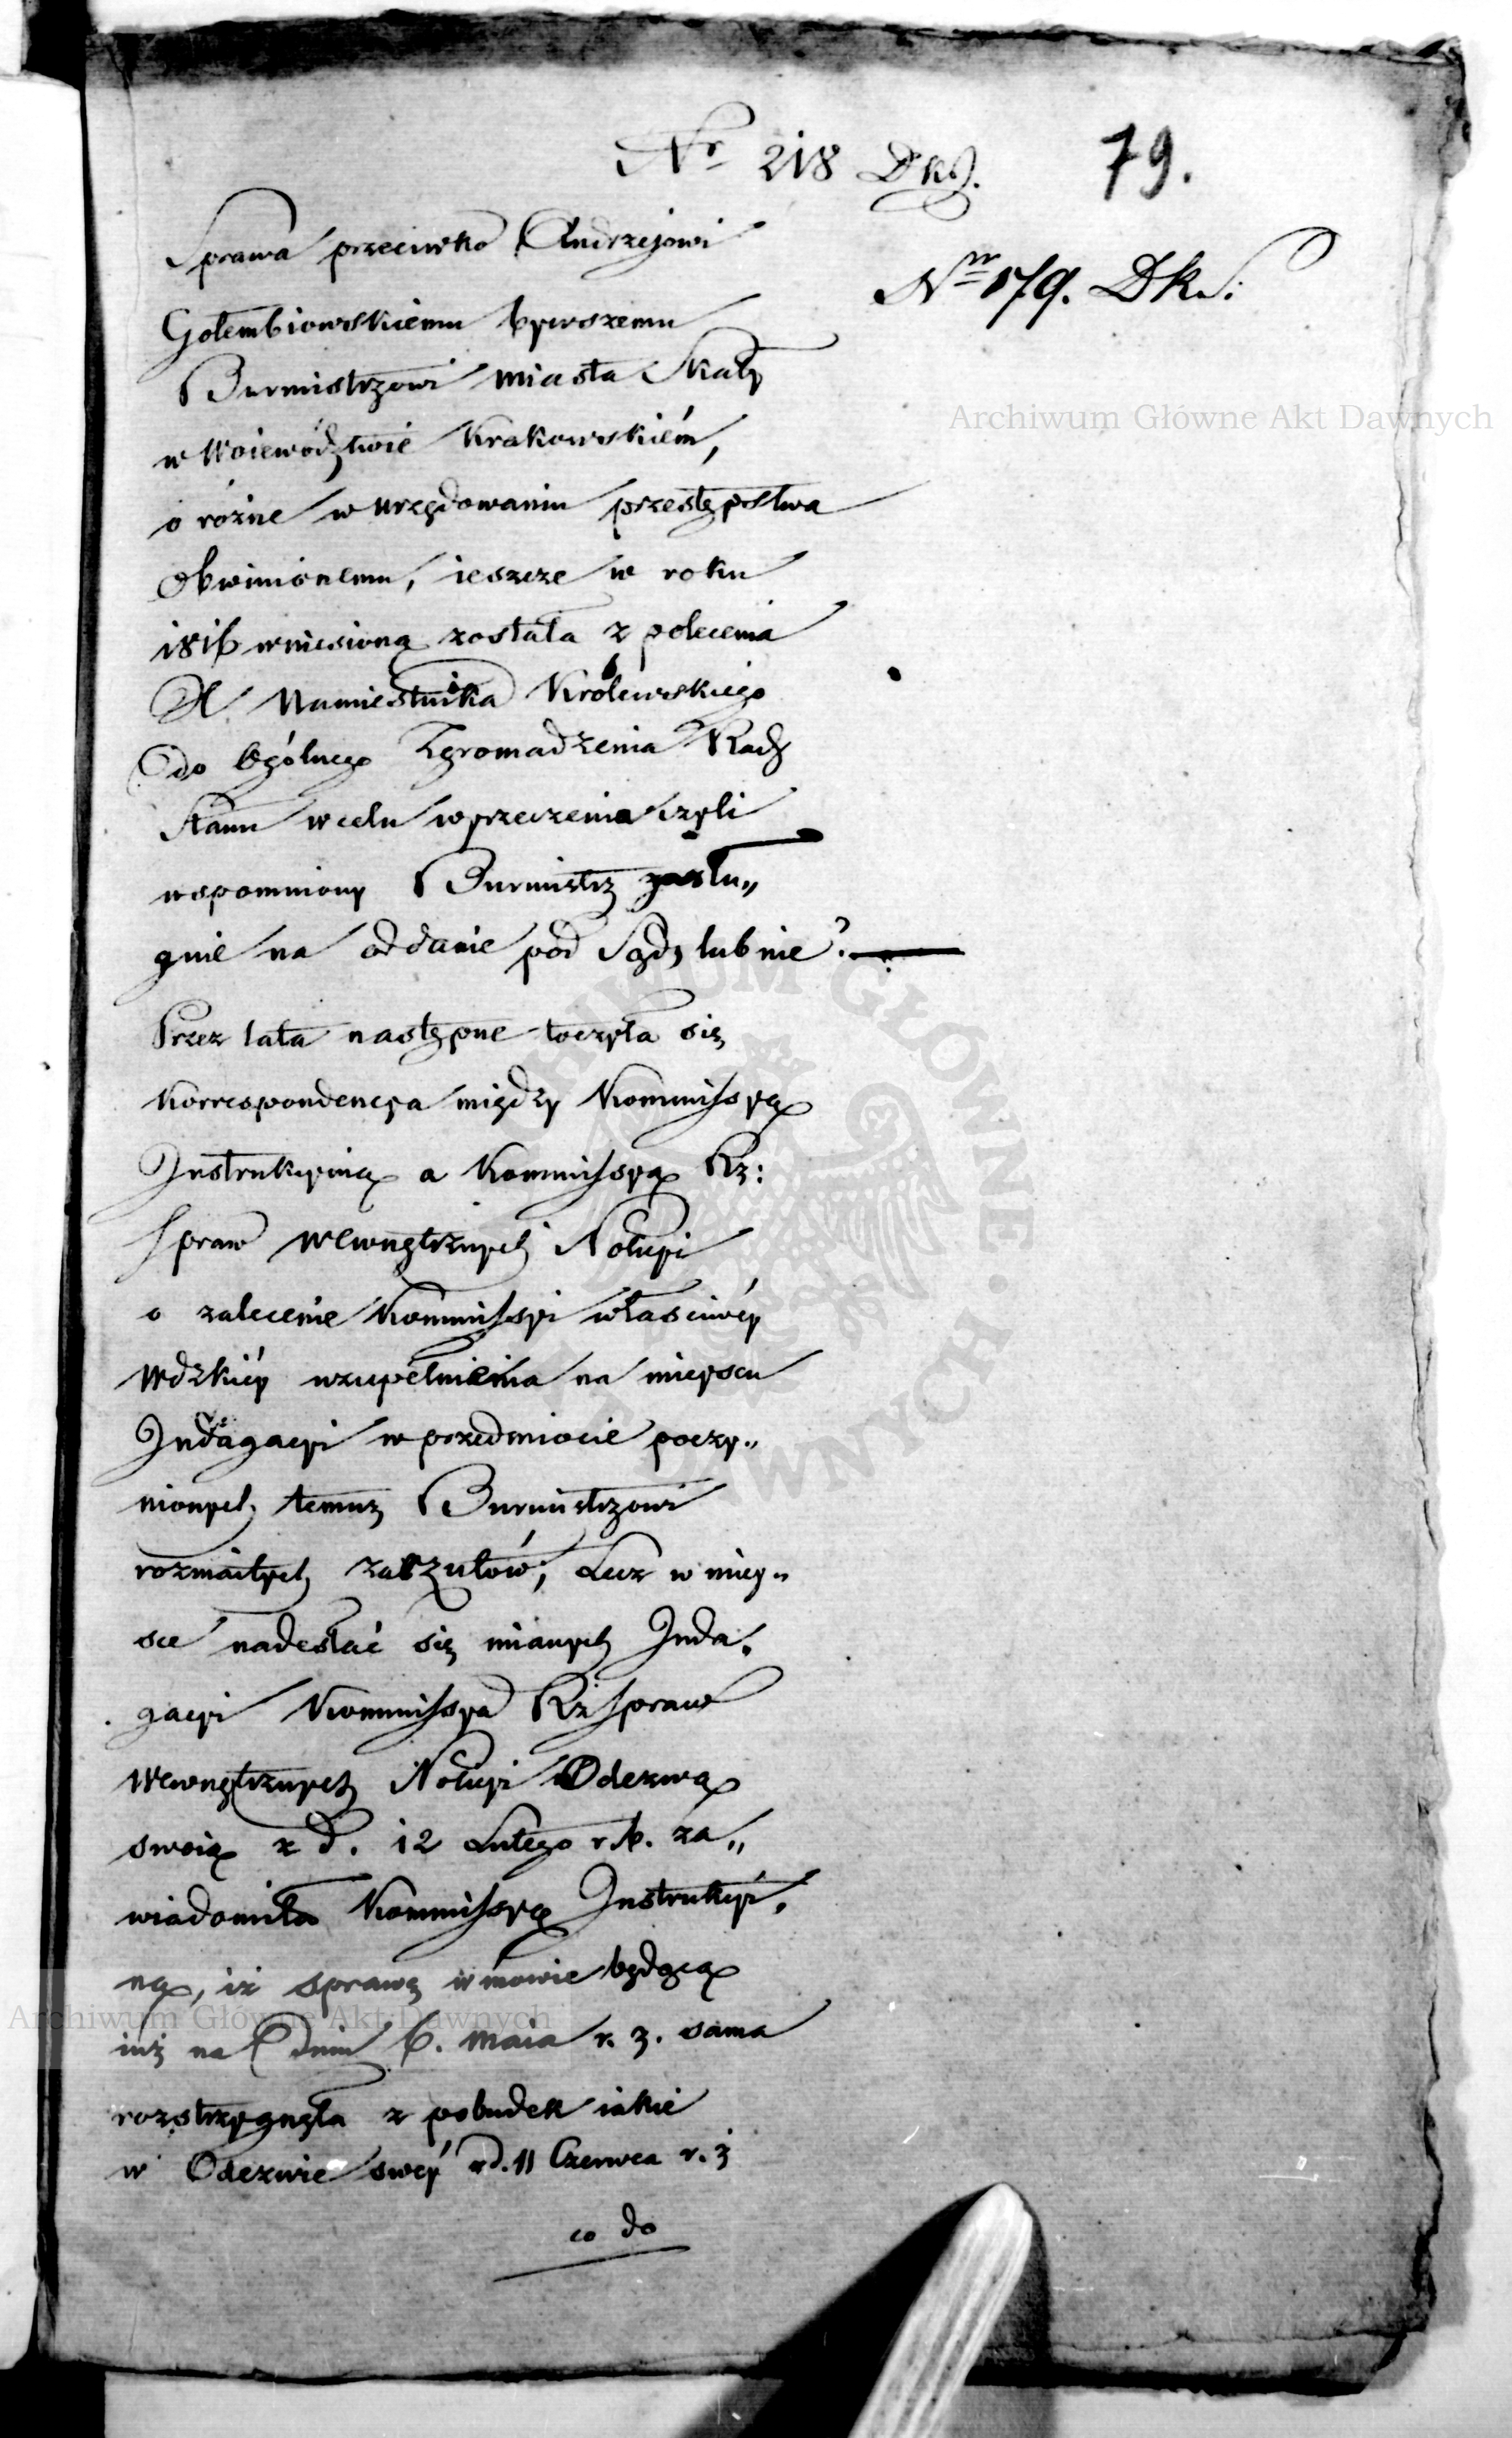 Nr 218 DkS.
79.
Nr 179. DkS:
Sprawa przeciwko Andrzejowi
Gołembiowskiemu bywszemu
Burmistrzowi miasta Skały
w Woiewództwie Krakowskiém,
o różne w urzędowaniu przestępstwa
Obwinionemu, ieszcze w roku
1816 wniesioną została z polecenia
X. Namiestnika Królewskiego
do Ogólnego Zgromadzenia Rady
Stanu w celu wyrzeczenia czyli
wspomniony Burmistrz zasłu„
guie na oddanie pod Sądy lub nie?.
Przez lata następne toczyła się
Korrespondencya między Kommissyą
Instrukcyiną a Kommissyą Rz:
Spraw Wewnętrznych i Policyi
o zalecenie Kommissyi właściwéy
Wdzkiéy uzupełnienia na mieyscu
Indagacyi w przedmiocie poczy„
nionych temuż Burmistrzowi
rozmaitych zarzutów; Lecz w miey„
sce nadesłać się mianych Inda„
gacyi Kommissya Rz Spraw
Wewnętrznych i Policyi Odezwą
swoią z d. 12 Lutego r. b. za„
wiadomiła Kommissyą Instrukcyi„
ną, iż sprawę w mowie będącą
iuż na dniu 6. Maia r. z. sama
rozstrzygnęła z pobudek iakie
w Odezwie swéy z d. 11 Czerwca r. z
co do
Archiwum Główne Akt Dawnych
Archiwum Główne Akt Dawnych